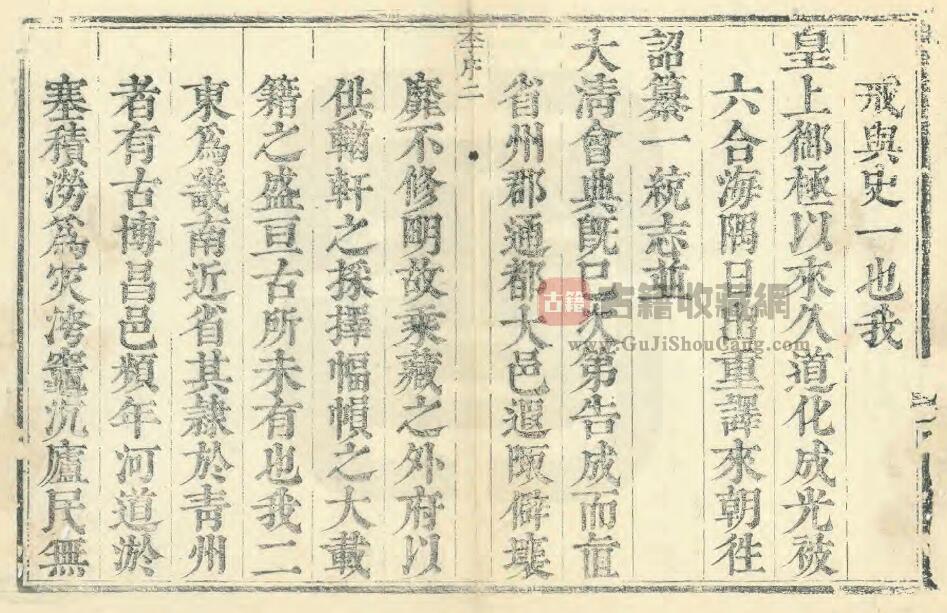 戒與史一也我
皇上御極以來久道化成光被
六合海隅日出重譯來朝徃
詔纂一統志並
大清會典旣已次第告成而直
省州郡通都大邑遐陬僻壤
靡不修明故乘藏之外府以
供輶軒之採擇幅幀之大載
籍之盛亘古所未有也我二
東爲畿南近省其隷於青州
者有古博昌邑頻年河道淤
塞積澇爲灾洿竈沉廬民無
李序二
古籍
古籍收藏網
www.GuJiShouCang.com